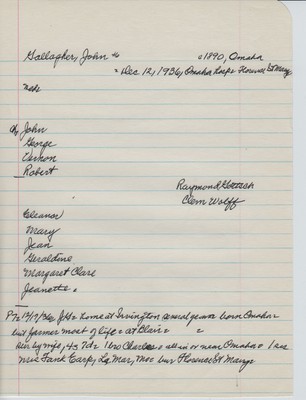 Gallagher, John
1890, Omaha
Dec 12, 1936, Omaha Hosp = Florence St Mary
John
George
Vernon
Robert
Raymond
Clem Wolff
Eleanor
Mary
Jean
Geraldine
Margaret Clare
Jeanette
home at Irvington several years born Omaha
but farmer most of life = at Blair =
Sur by wife, 4s 7d = 1 bro Charles = all in or near Omaha = 1 sis
Mrs Frank Earp, La Mar, Mo = bur Florence St Marys